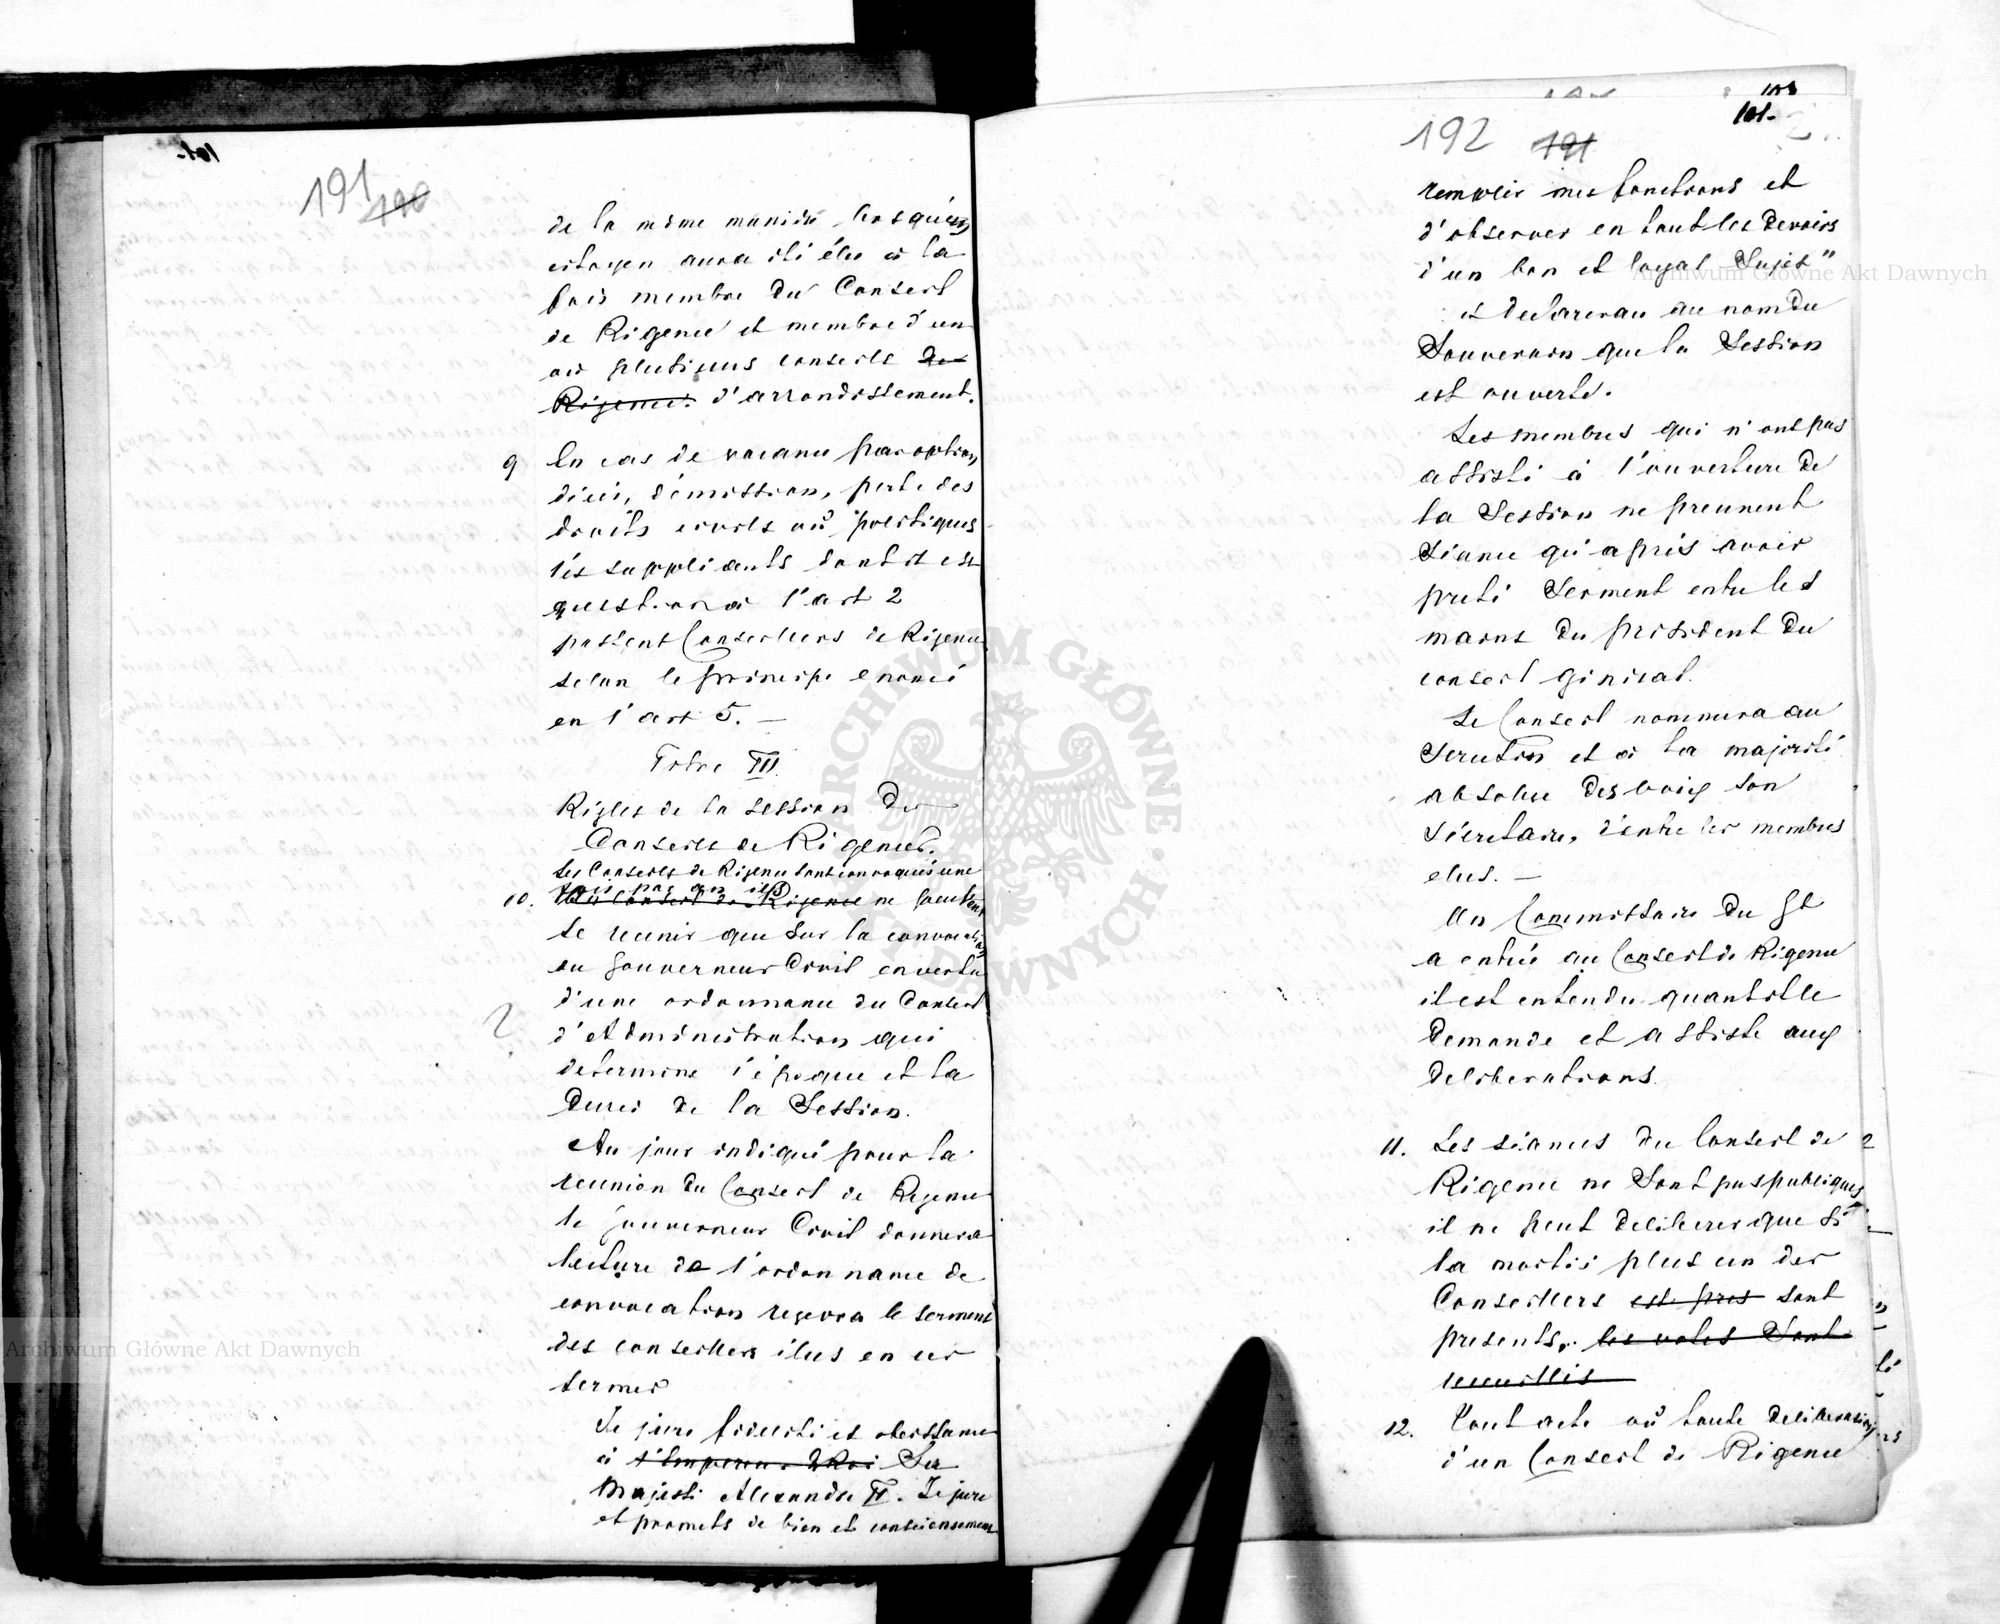 191 190
de la même manière lorsqu'un
citoyen aura été élu à la
fois membre du Conseil
de Régence et membre d'un
ou plusieurs conseils de
Régence. d'arrondissement.
9 En cas de vacance par option,
décès, démission, perte des
droits civils ou politiques
les suppléants dont il est
question à l'art 2
passent Conseillers de Régence
selon le principe enoncé
en l'art 5. —
Titre III.
Règles de la session des
Conseils de Régence.
Les Conseils de Régence sont convoqués une
fois par an ils
10. Un Conseil de Régence ne peuvent
se reunir que sur la convocation
du Gouverneur Civil en vertu
d'une ordonnance du Conseil
d'Administration qui
determine l'époque et la
Durée de la Session.
Au jour indiqué pour la
reunion du Conseil de Régence
le gouverneur Civil donnera
lecture de l'ordonnance de
convocation recevra le serment
des conseillers élus en ces
termes
Je jure fidelité et obeissance
à l'Empereur & Roi Sa
Majesté Alexandre II. Je jure
et promets de bien et consciensement
192 191
101.
remplir mes fonctions et
d'observer en tout les Devoirs
d'un bon et loyal Sujet"
et declarera au nom du
Souverain que la Session
est ouverte.
Les membres qui n'ont pas
assisté à l'ouverture de
la Session ne prennent
Séance qu'après avoir
preté Serment entre les
mains du président du
conseil général.
Le Conseil nommera au
Scrutin et à la majorité
absolue des voix son
Sécretaire, d'entre les membres
elus. —
Un Commissaire du Gt
a entrée au Conseil de Régence
il est entendu quand il le
Demande et assiste aux
deliberations.
11. Les séances du Conseil de
Régence ne Sont pas publiques
il ne peut deliberer que si
la moitié plus un des
Conseillers est pres sont
presents. les votes Sont
recueillis
12. Tout acte ou toute deliberation
d'un Conseil de Régence
ARCHIWUM GŁÓWNE AKT DAWNYCH
Archiwum Główne Akt Dawnych
Archiwum Główne Akt Dawnych